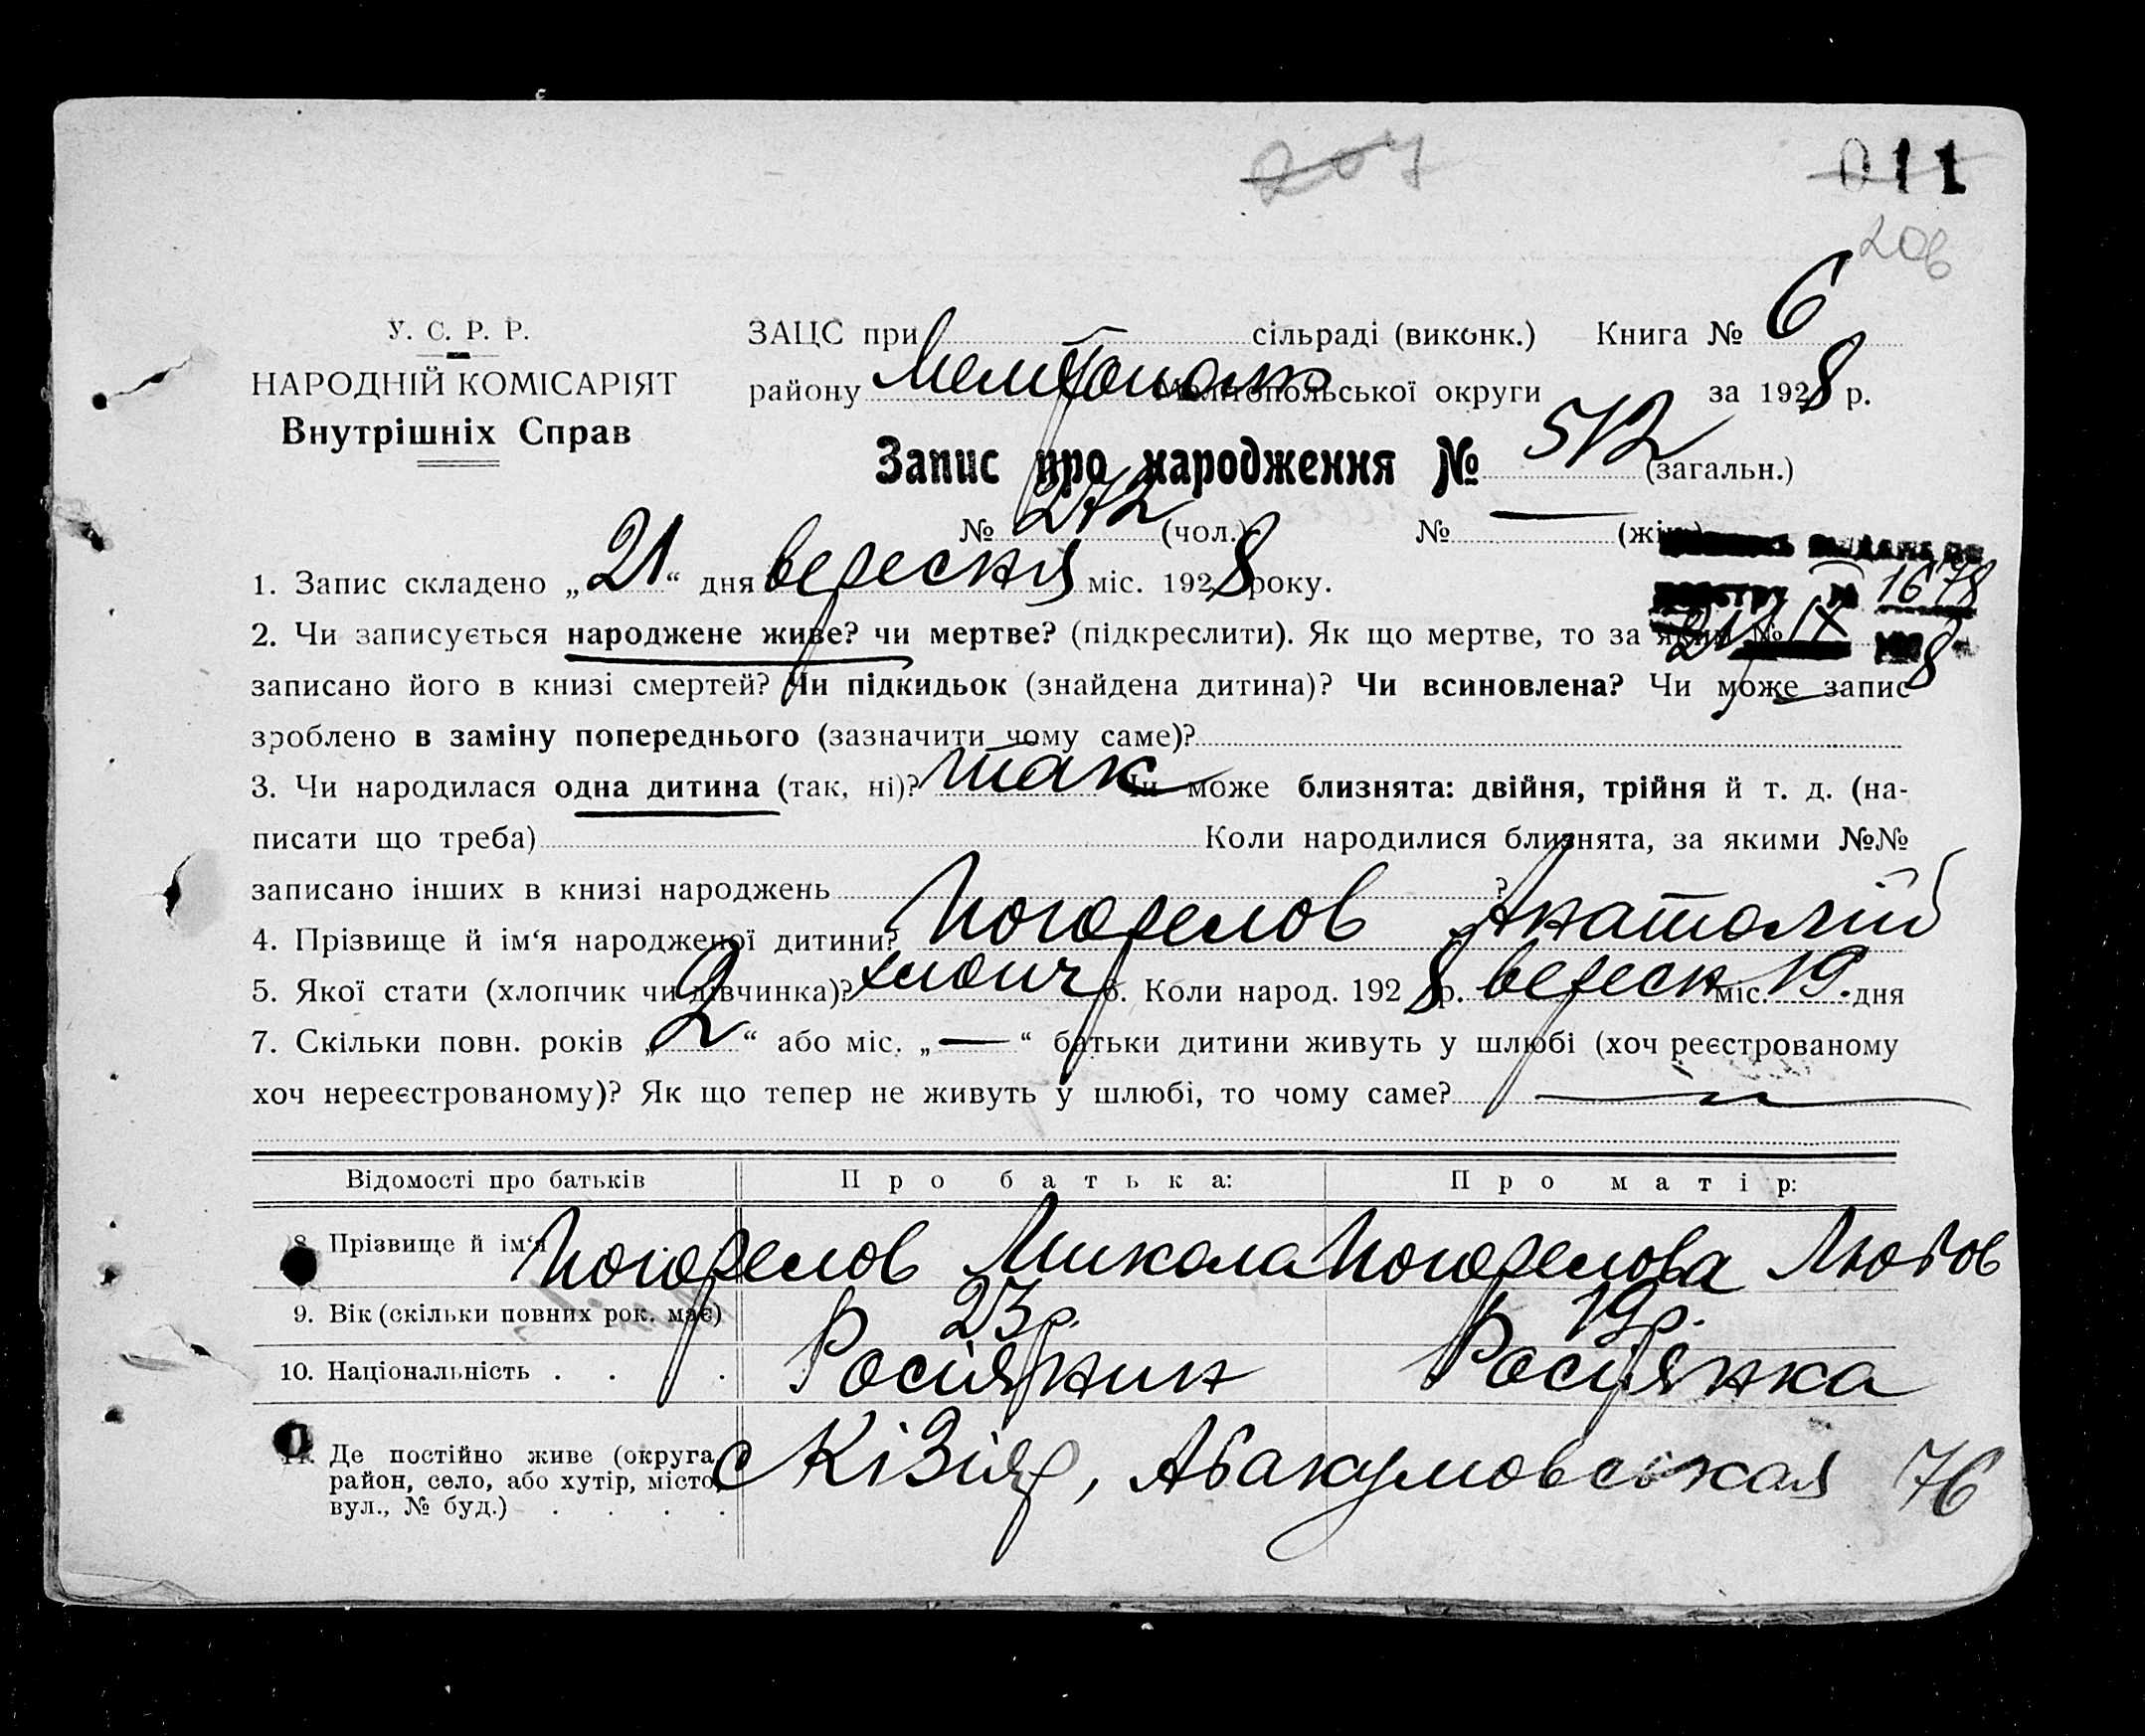 204
011
206
У. С. Р. Р.
НАРОДНІЙ КОМІСАРІЯТ
Внутрішніх Справ
ЗАЦС при сільраді (виконк.) Книга № 6
району Мелітопольської округи за 1928 р.
Запис про народження № 512 (загальн.)
№ 272 (чол.) № — (жін.)
1678
1. Запис складено „21“ дня вересня міс. 1928 року.
21/IX 8
2. Чи записується народжене живе? чи мертве? (підкреслити). Як що мертве, то за яким №
записано його в книзі смертей? Чи підкидьок (знайдена дитина)? Чи всиновлена? Чи може запис
зроблено в заміну попереднього (зазначити чому саме)?
3. Чи народилася одна дитина (так, ні)? так Чи може близнята: двійня, трійня й т. д. (на-
писати що треба) Коли народилися близнята, за якими №№
записано інших в книзі народжень ?
4. Прізвище й ім‘я народженої дитини? Погорелов Анатолій
5. Якої стати (хлопчик чи дівчинка)? хлопч 6. Коли народ. 1928 р. вересн міс. 19. дня
7. Скільки повн. років „2“ або міс. „—“ батьки дитини живуть у шлюбі (хоч реєстрованому
хоч нереєстрованому)? Як що тепер не живуть у шлюбі, то чому саме?
Відомості про батьків Про батька: Про матір:
8. Прізвище й ім‘я Погорелов Микола Погорелова Любов
9. Вік (скільки повних рок. має) 23 р. 19 р.
10. Національність . . . . Росіянин Росіянка
11. Де постійно живе (округа, район, село, або хутір, місто, вул., № буд.) . . . . с Кізіяр, Абакумовська 76